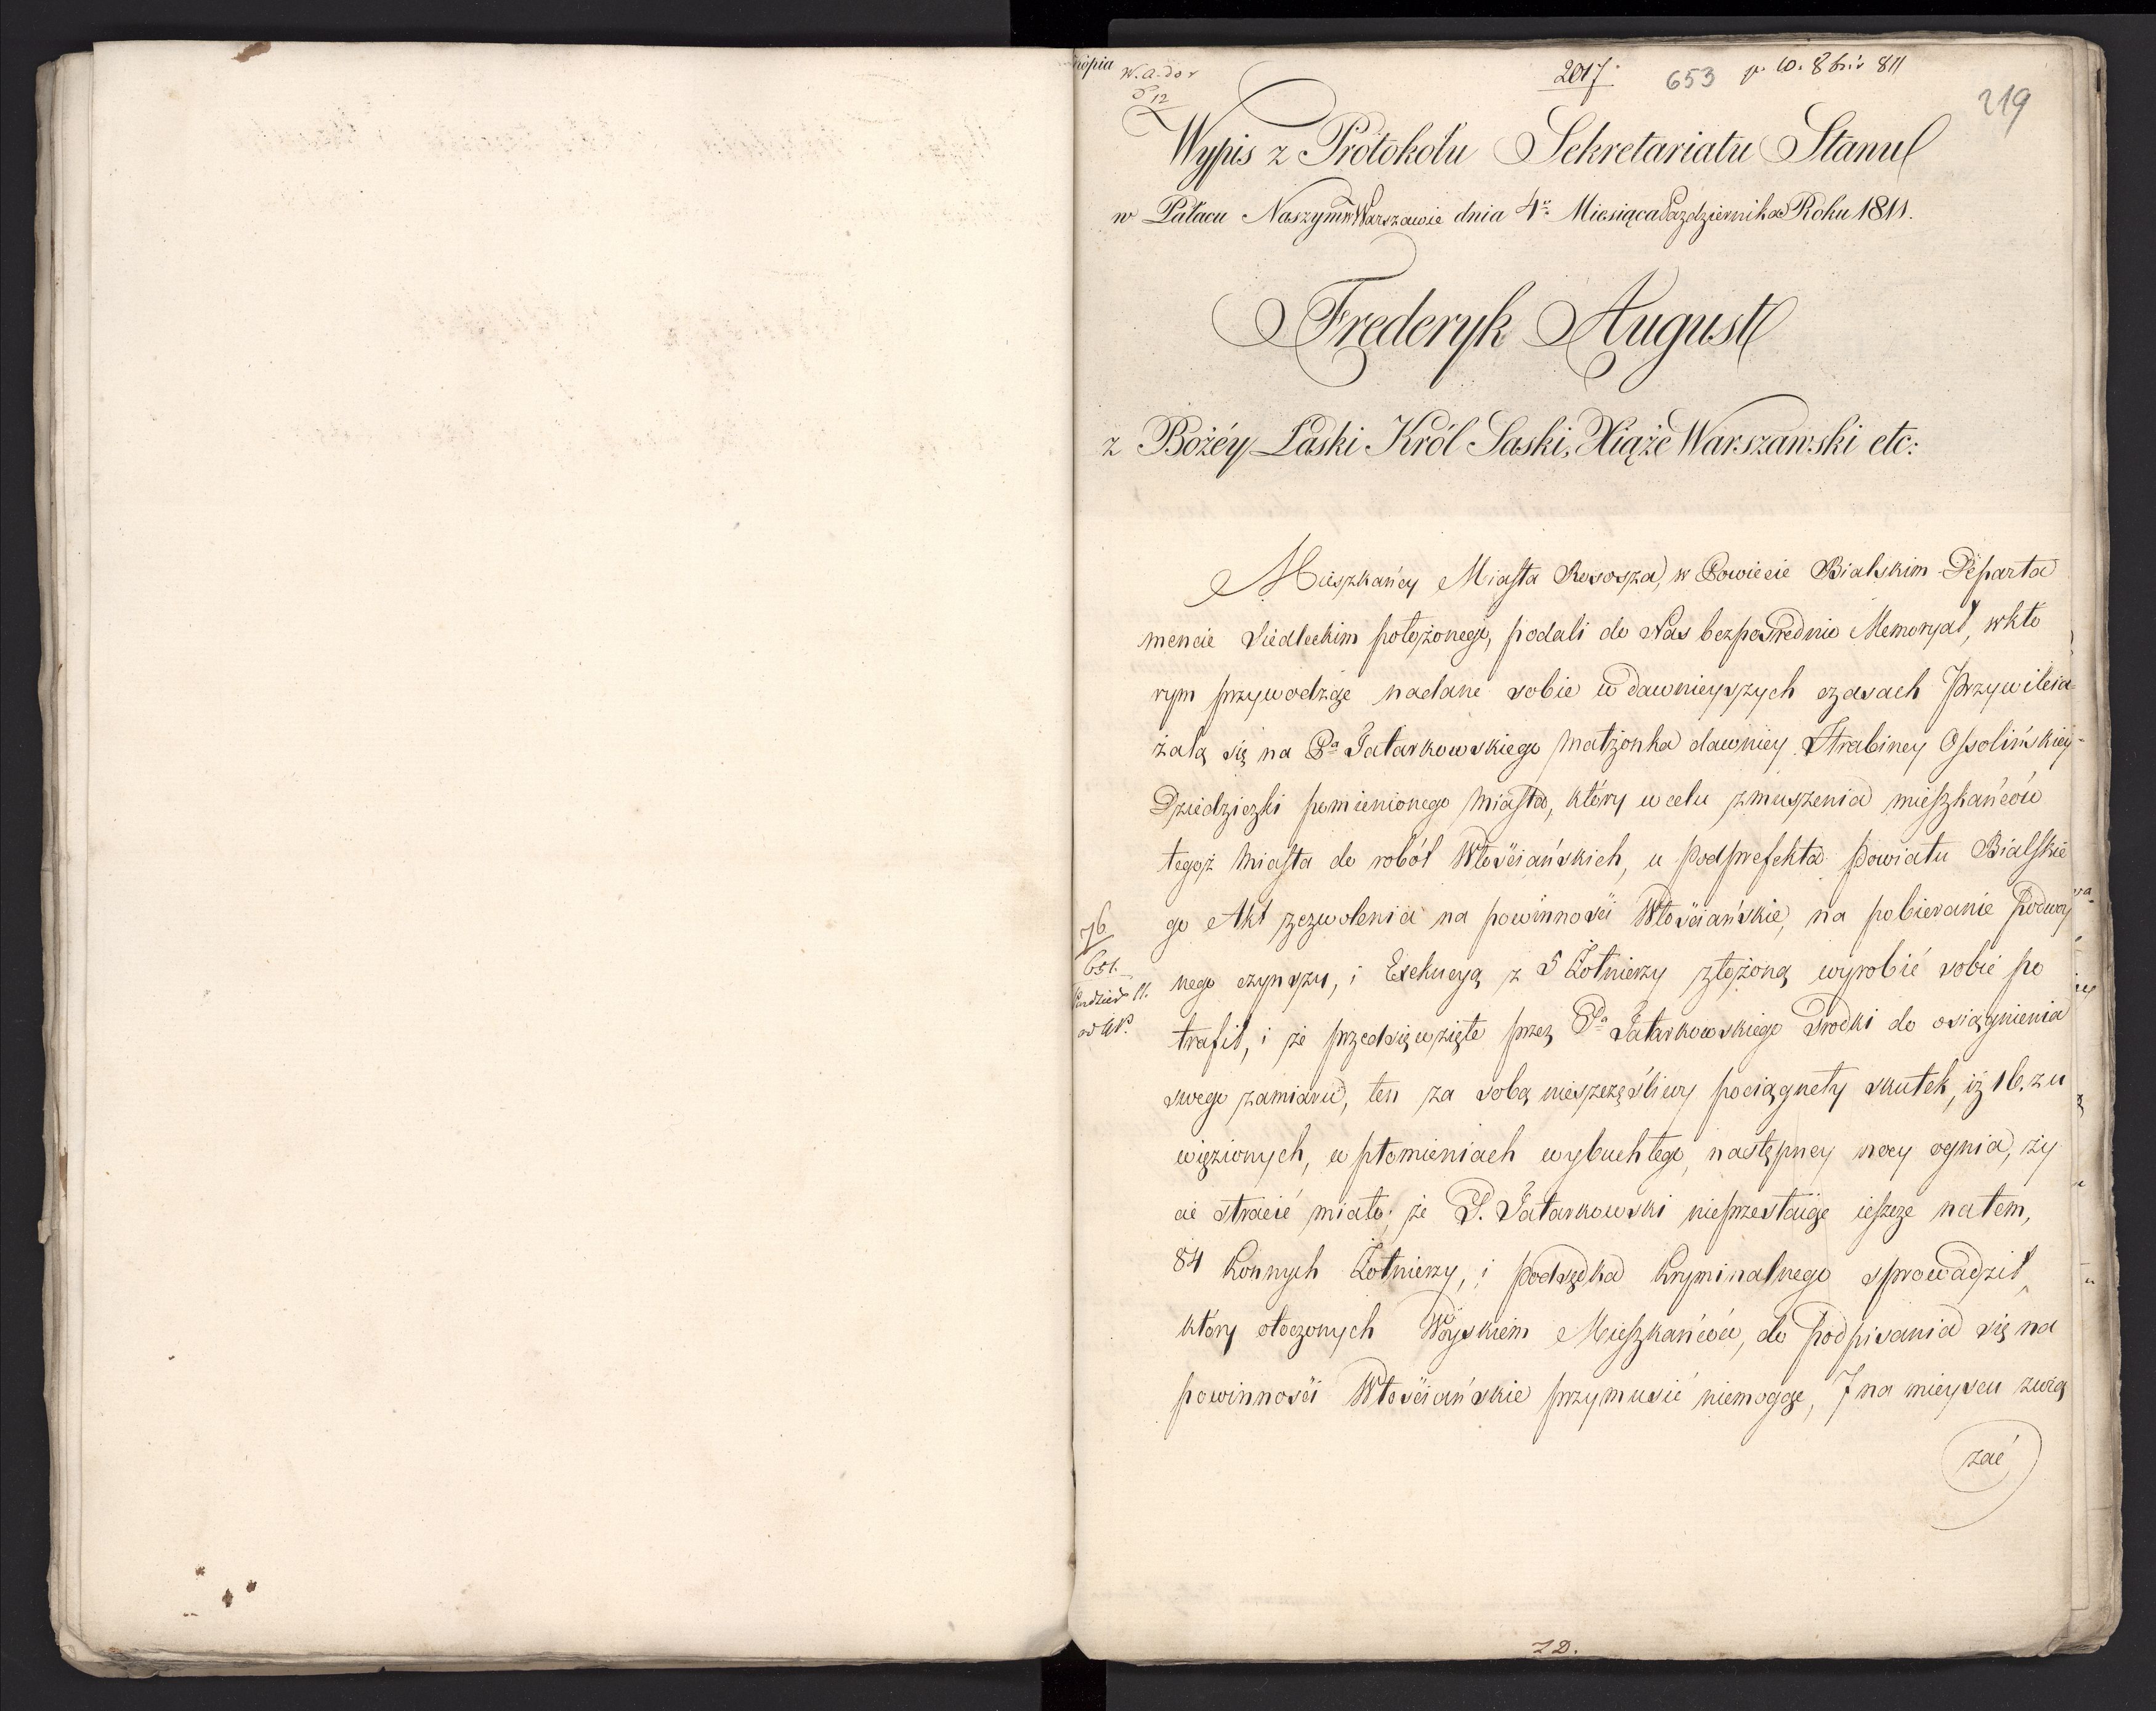 2017.
653
p. 10. 8bris 811
219
Wypis z Protokołu Sekretariatu Stanu
w Pałacu Naszym w Warszawie dnia 4. Miesiąca Pazdziernika Roku 1811.
Frederyk August
z Bożéy Łaski Król Saski, Xiąże Warszawski etc:
Mieszkańcy Miasta Rososza, w Powiecie Bialskim Departa
mencie Siedleckim położonego, podali do Nas bezpośrednio Memoryał, w któ
rym przywodząc nadane sobie w dawnieyszych czasach Przywileia
żalą się na Pa Tatarkowskiego małżonka dawniey Hrabiney Ossolińskiey
Dziedziczki pomienionego Miasta, który w celu zmuszenia mieszkańców
tegoż Miasta do robót Włościańskich, u Podprefekta Powiatu Bialskie
go Akt zezwolenia na powinności Włościańskie, na pobieranie Podwoy
nego czynszu, i Exekucyą z 5 Żołnierzy złożoną wyrobić sobie po
trafił, i że przedsięwzięte przez Pa Tatarkowskiego środki do osiągnienia
swego zamiaru, ten za sobą nieszczęśliwy pociągnęły skutek, iż 16. z u
więzionych, w płomieniach wybuchłego, następney nocy ognia, ży
cie stracić miało; że P. Tatarkowski nieprzestaiąc ieszcze na tem,
84 Konnych Żołnierzy, i Podsędka Kryminalnego sprowadził,
który otoczonych Woyskiem Mieszkańców, do podpisania się na
powinności Włościańskie przymusić niemogąc, 7 na mieyscu zwią
zać
76
651.
ZD.